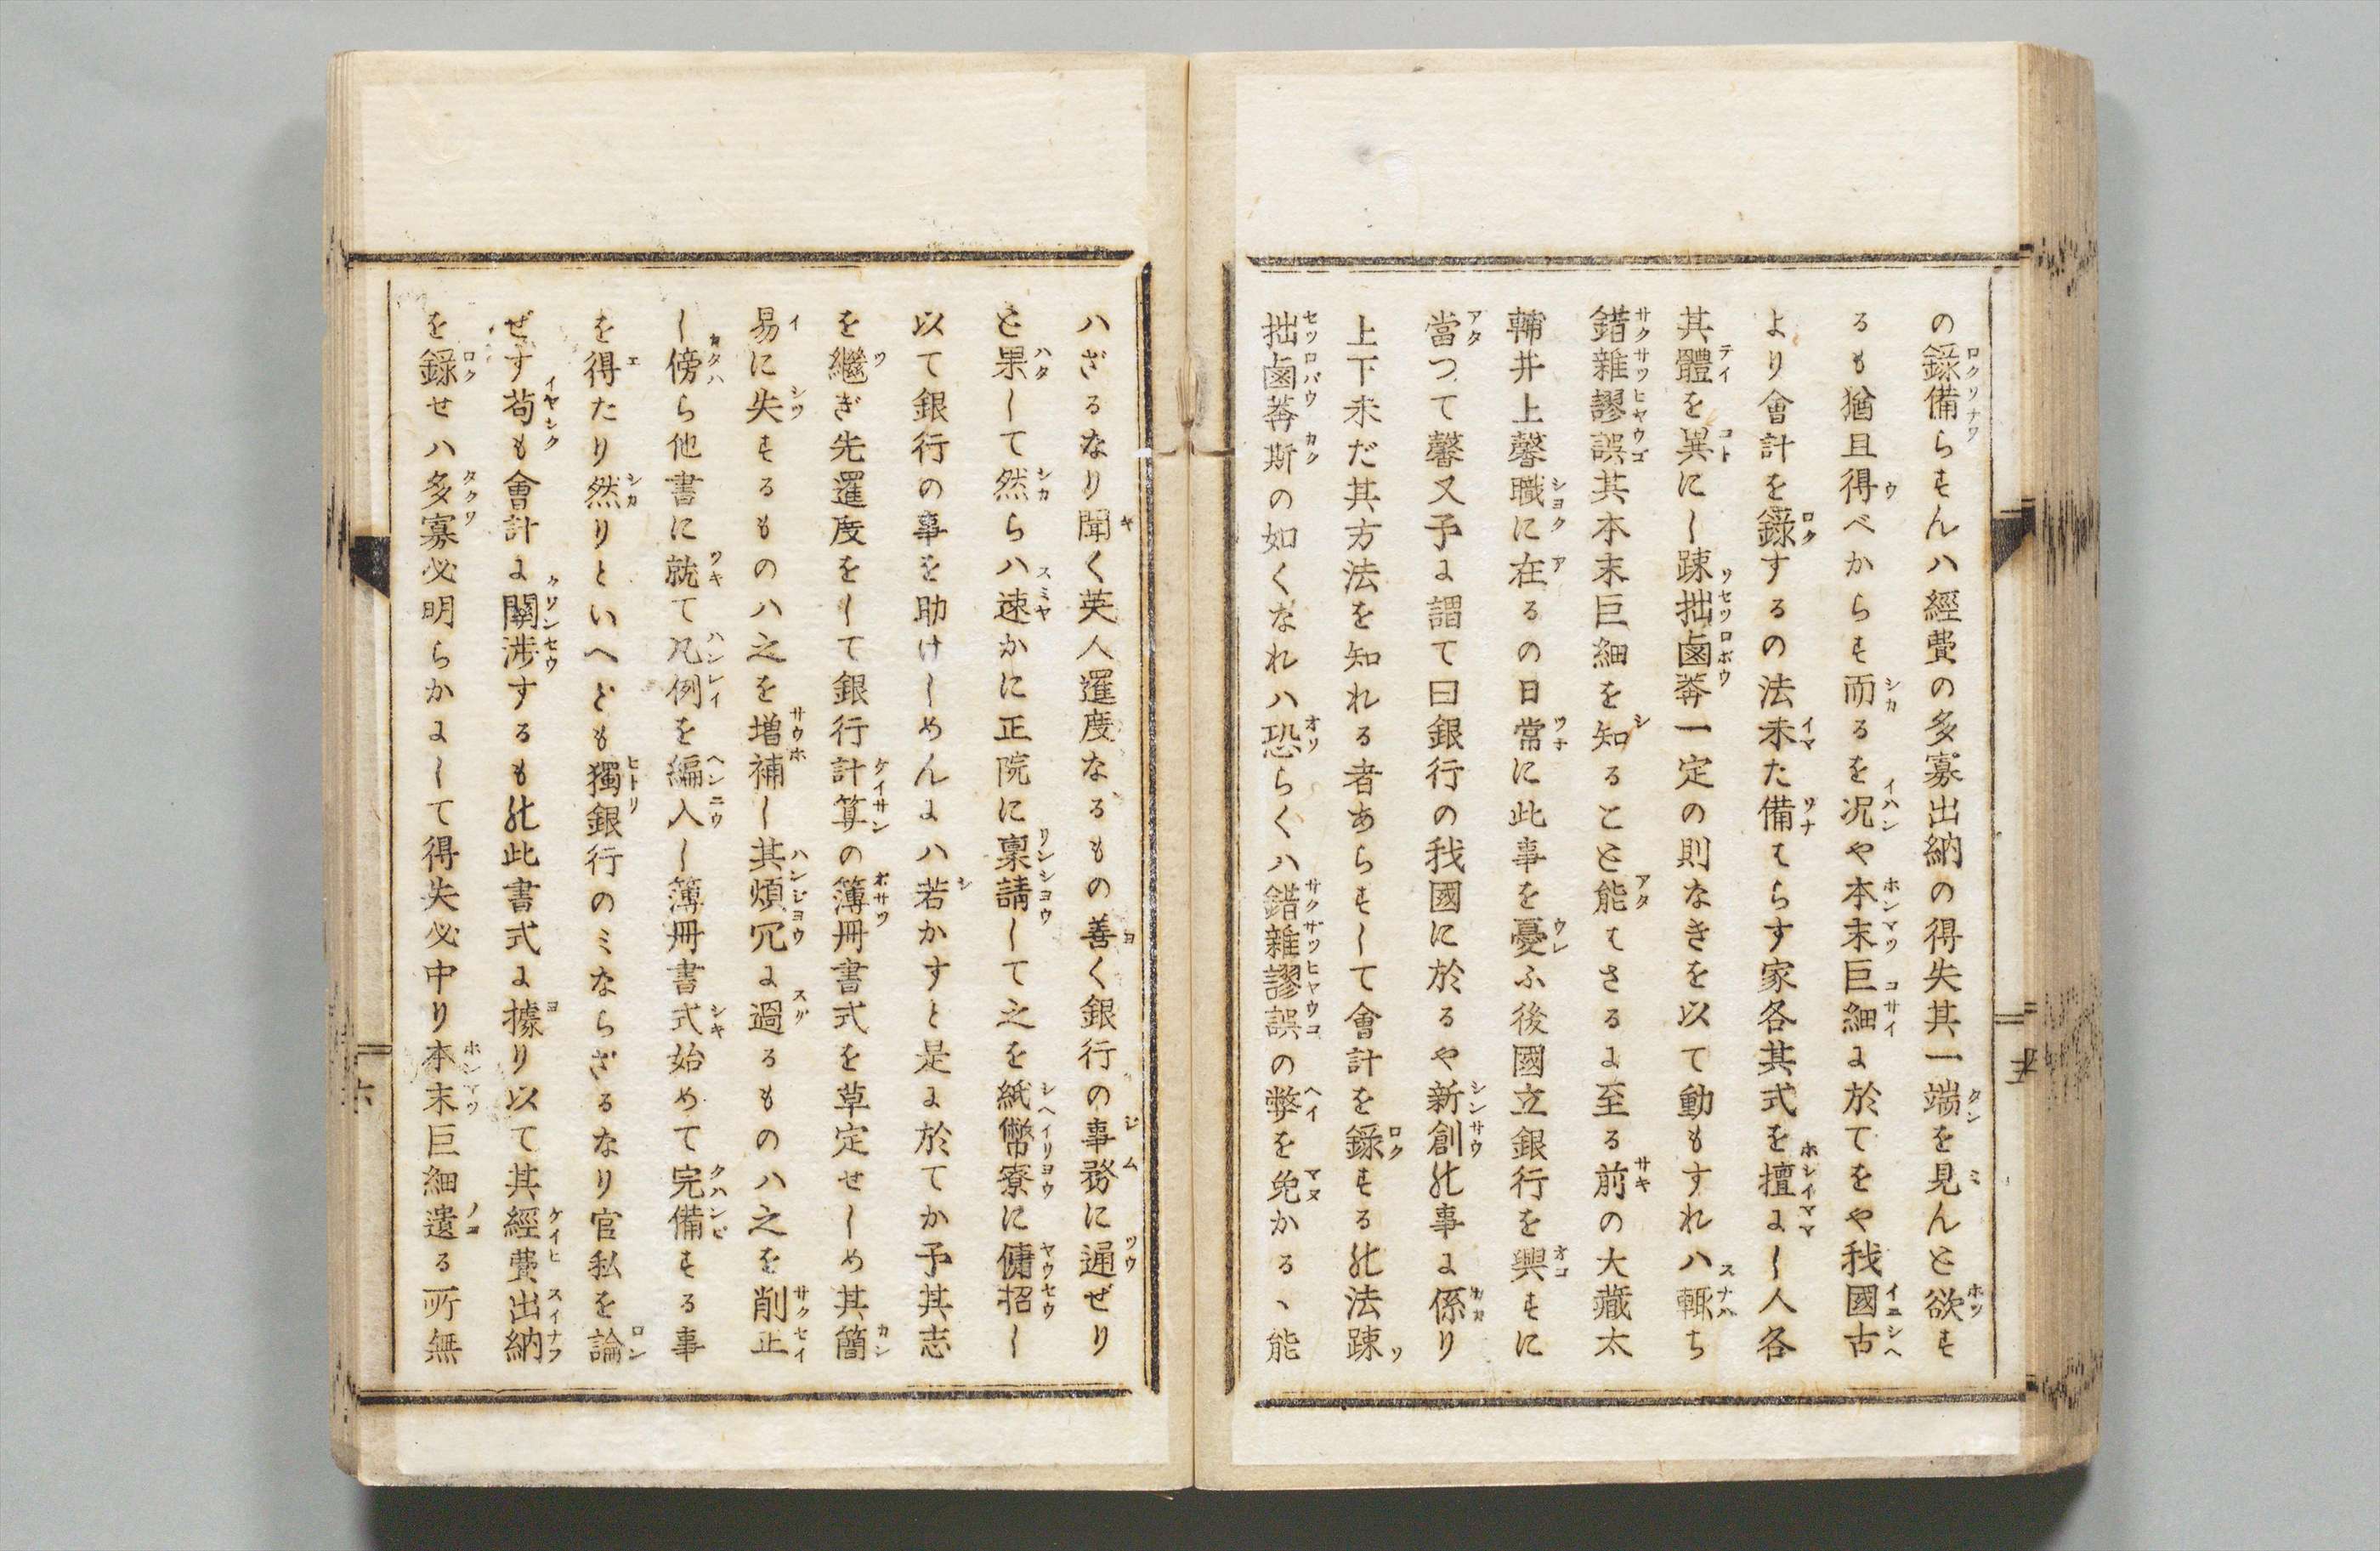 の録備らすんハ經費の多寡出納の得失其一端を見んと欲す
るも猶且得べからす而るを况や本末巨細に於てをや我國古
より會計を録するの法未た備はらす家各其式を擅にし人各
其體を異にし踈拙鹵莽一定の則なきを以て動もすれハ輙ち
錯雜謬誤其本末巨細を知ること能はさるに至る前の大藏太
輔井上馨職に在るの日常に此事を憂ふ後國立銀行を興すに
當つて馨又予に謂て曰銀行の我國に於るや新創の事に係り
上下未だ其方法を知れる者あらすして會計を録するの法踈
拙鹵莽斯の如くなれハ恐らくハ錯雜謬誤の弊を免かるヽ能
ハざるなり聞く英人暹度なるもの善く銀行の事務に通ぜり
と果して然らハ速かに正院に稟請して之を紙幣寮に傭招し
以て銀行の事を助けしめんにハ若かすと是に於てか予其志
を繼ぎ先暹度をして銀行計算の簿冊書式を草定せしめ其簡
易に失するものハ之を増補し其煩冗に過るものハ之を削正
し傍ら他書に就て凡例を編入し簿冊書式始めて完備する事
を得たり然りといへども獨銀行のミならざるなり官私を論
ぜす苟も會計に關渉するもの此書式に據り以て其經費出納
を録せハ多寡必明らかにして得失必中り本末巨細遺る所無
五
六